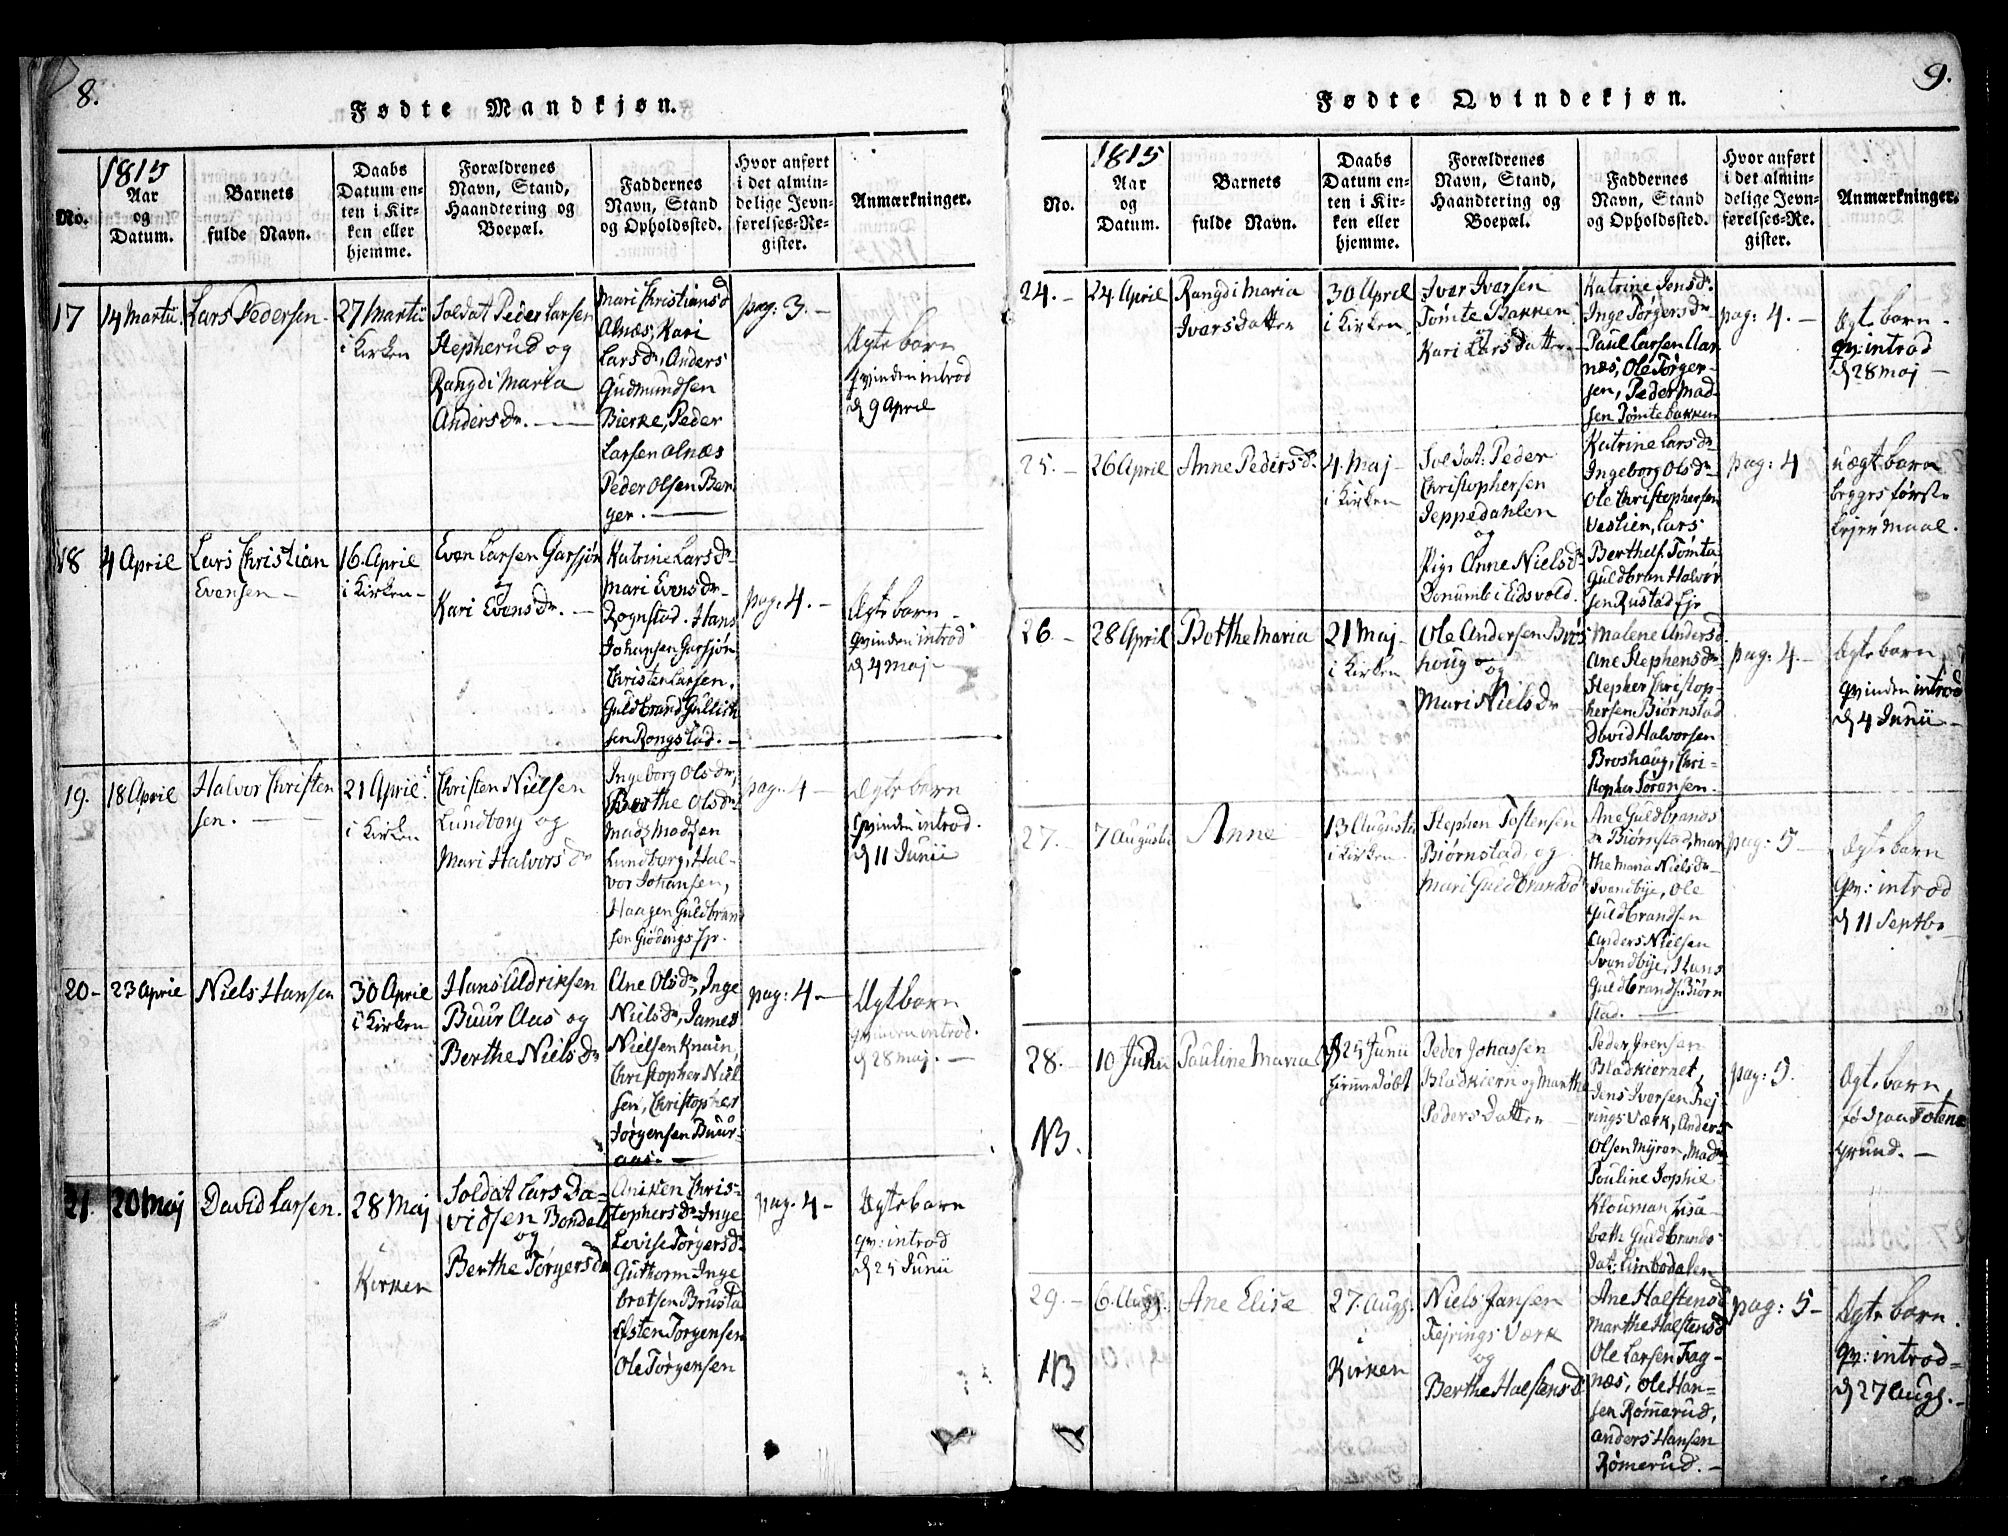 8.
Fødte Mandkjøn.
1815
No.
Aar
og
Datum.
Barnets
fulde Navn.
Daabs
Datum en-
ten i Kir-
ken eller
hjemme.
Forældrenes
Navn, Stand,
Haandtering og
Boepæl.
Faddernes
Navn, Stand
og Opholdssted.
Hvor anført
i det almin-
delige Jevn-
førelses-Re-
gister.
Anmærkninger.
17
14 Martii.
Lars Pedersen.
27 Martii
i Kirken
Soldat Peder Larsen
Stepherud og
Rangdi Maria
Andersdr.
Mari Christiansd
Alnæs, Kari
Larsdr, Anders
Gudmundsen
Bierke, Peder
Larsen Alnæs
Peder Olsen Ber
ger.
pag: 3.
Ægte barn
qvinden introd
d 9 April
18
4 April
Lars Christian
Evensen
16. April
i Kirken
Even Larsen Garsjøn
og
Kari Evensdr.
Katrine Larsdr
Mari Evensdr
Rognstad. Hans
Johansen Garsjøn
Christen Larsen.
Guldbrand Gullich
sen Rongstad.
pag: 4.
Ægte barn
qvinden introd
d 4 maj
19.
18 April
Halvor Christen
sen.
21 April
i Kirken
Christen Nielsen
Lundborg og
Mari Halvorsdr
Ingeborg Olsdr,
Berthe Olsdr
Mads Madsen
Lundborg, Hal-
vor Johansen,
Haagen Guldbrand
sen Giødings Ejr.
pag: 4
Ægte barn
qvinden introd.
d 11 Junii
20
23 April
Niels Hansen
30 April
i Kirken
Hans Uldriksen
Buur Aas og
Berthe Nielsdr
Ane Olsdr, Inge
Nielsdr, James
Nielsen Knain,
Christopher Niel
sen, Christopher
Jørgensen Buur-
aas.
pag: 4
Ægtbarn
qvinden introd.
d 28 maj.
21.
20 Maj
David Larsen.
28 Maj
i
Kirken
Soldat Lars Da=
vidsen Bondal
og
Berthe Tørgersdr
Aniken Chris=
tophersdr Inge
Lovise Tørgersdr
Guttorm Inge
bretsen Brusta
Østen Torgensen
Ole Tørgensen
pag. 4
Ægte barn
qv: introd
d 25 Junii
9.
Fødte Qvindekjøn.
1815
No.
Aar
og
Datum.
Barnets
fulde Navn.
Daabs
Datum en-
ten i Kir-
ken eller
hjemme.
Forældrenes
Navn, Stand,
Haandtering og
Boepæl.
Faddernes
Navn, Stand
og Opholdssted.
Hvor anført
i det almin-
delige Jevn-
førelses-Re-
gister.
Anmærkninger.
24.
24 April
Rangdi Maria
Ivarsdatter
30 April
i Kirken.
Ivar Ivarsen
Tømte Bakken
og
Kari Larsdatter
Katrine Jensdr
Inge Tørgersdr
Paul Larsen Aar
næs, Ole Tørger-
sen, Peder Mad-
sen Tømtebakken
pag: 4.
Ægte barn
qv: introd
d 28 maj
25.
26 April
Anne Pedersdr
4. Maj
i Kirken
Soldat: Peder
Christophersen
Jeppedahlen
og
Pige Anne Nielsdr
Dønumb i Eidsvold.
Katrine Larsdr
Ingeborg Olsdr
Ole Christophersen
Vestien, Lars
Berthels Tømta
Guldbran Halvor
sen Rustad Ejr
pag: 4
uægt barn
begges første
Lejermaal.
26.
28 April
Berthe Maria
21 Maj
i Kirken
Ole Andersen Brøs
houg og
Mari Nielsdr
Malene Andersd.
Ane Stephensdr
Stephen Christop-
hersen Biørnstad
David Halvorsen
Broshaug, Chri-
stopher Sørensen.
pag: 4.
Ægte barn
qvinden introd
d 4 Junii
27.
7 Augusti
Anne
13 Augusti
i Kirken
Stephen Tostensen
Biørnstad, og
Mari Guldbrandsd
Ane Guldbrands
dr Biørnstad, Mar
the Maria Nielsdr
Svendbye, Ole
Guldbrandsen
Anders Nielsen
Svendbye, Hans
Guldbrands. Biørn
stad.
pag: 5
Ægte barn
qv: introd
d 11 Septbr
28.
NB.
10 Junii
Pauline Maria
d 25 Junii
hiemmedøbt
Peder Johassen
Bladkiern og Marthe
Pedersdatter
Peder Jrensen
Bladkiernet,
Jens Ivarsen Fej-
rings Værk, Anders
Olsen Myror, Madm
Pauline Sophie
Klouman Lisa-
beth Guldbrands-
dat: Limbodalen
pag: 5.
Ægte barn
fød paa Totens
grund.
29.
NB
6. Augs.
Ane Elise
27. Augs.
i
Kirken
Niels Jansen
Fejrings Værk
og
Berthe Halstensd
Ane Halstensd
Marthe Halstensd
Ole Larsen Frag-
næs, Ole Han=
sen Rømerud,
Anders Hansen
Rømerud.
pag: 5
Ægte barn.
qv: introd
d 27 Augs.